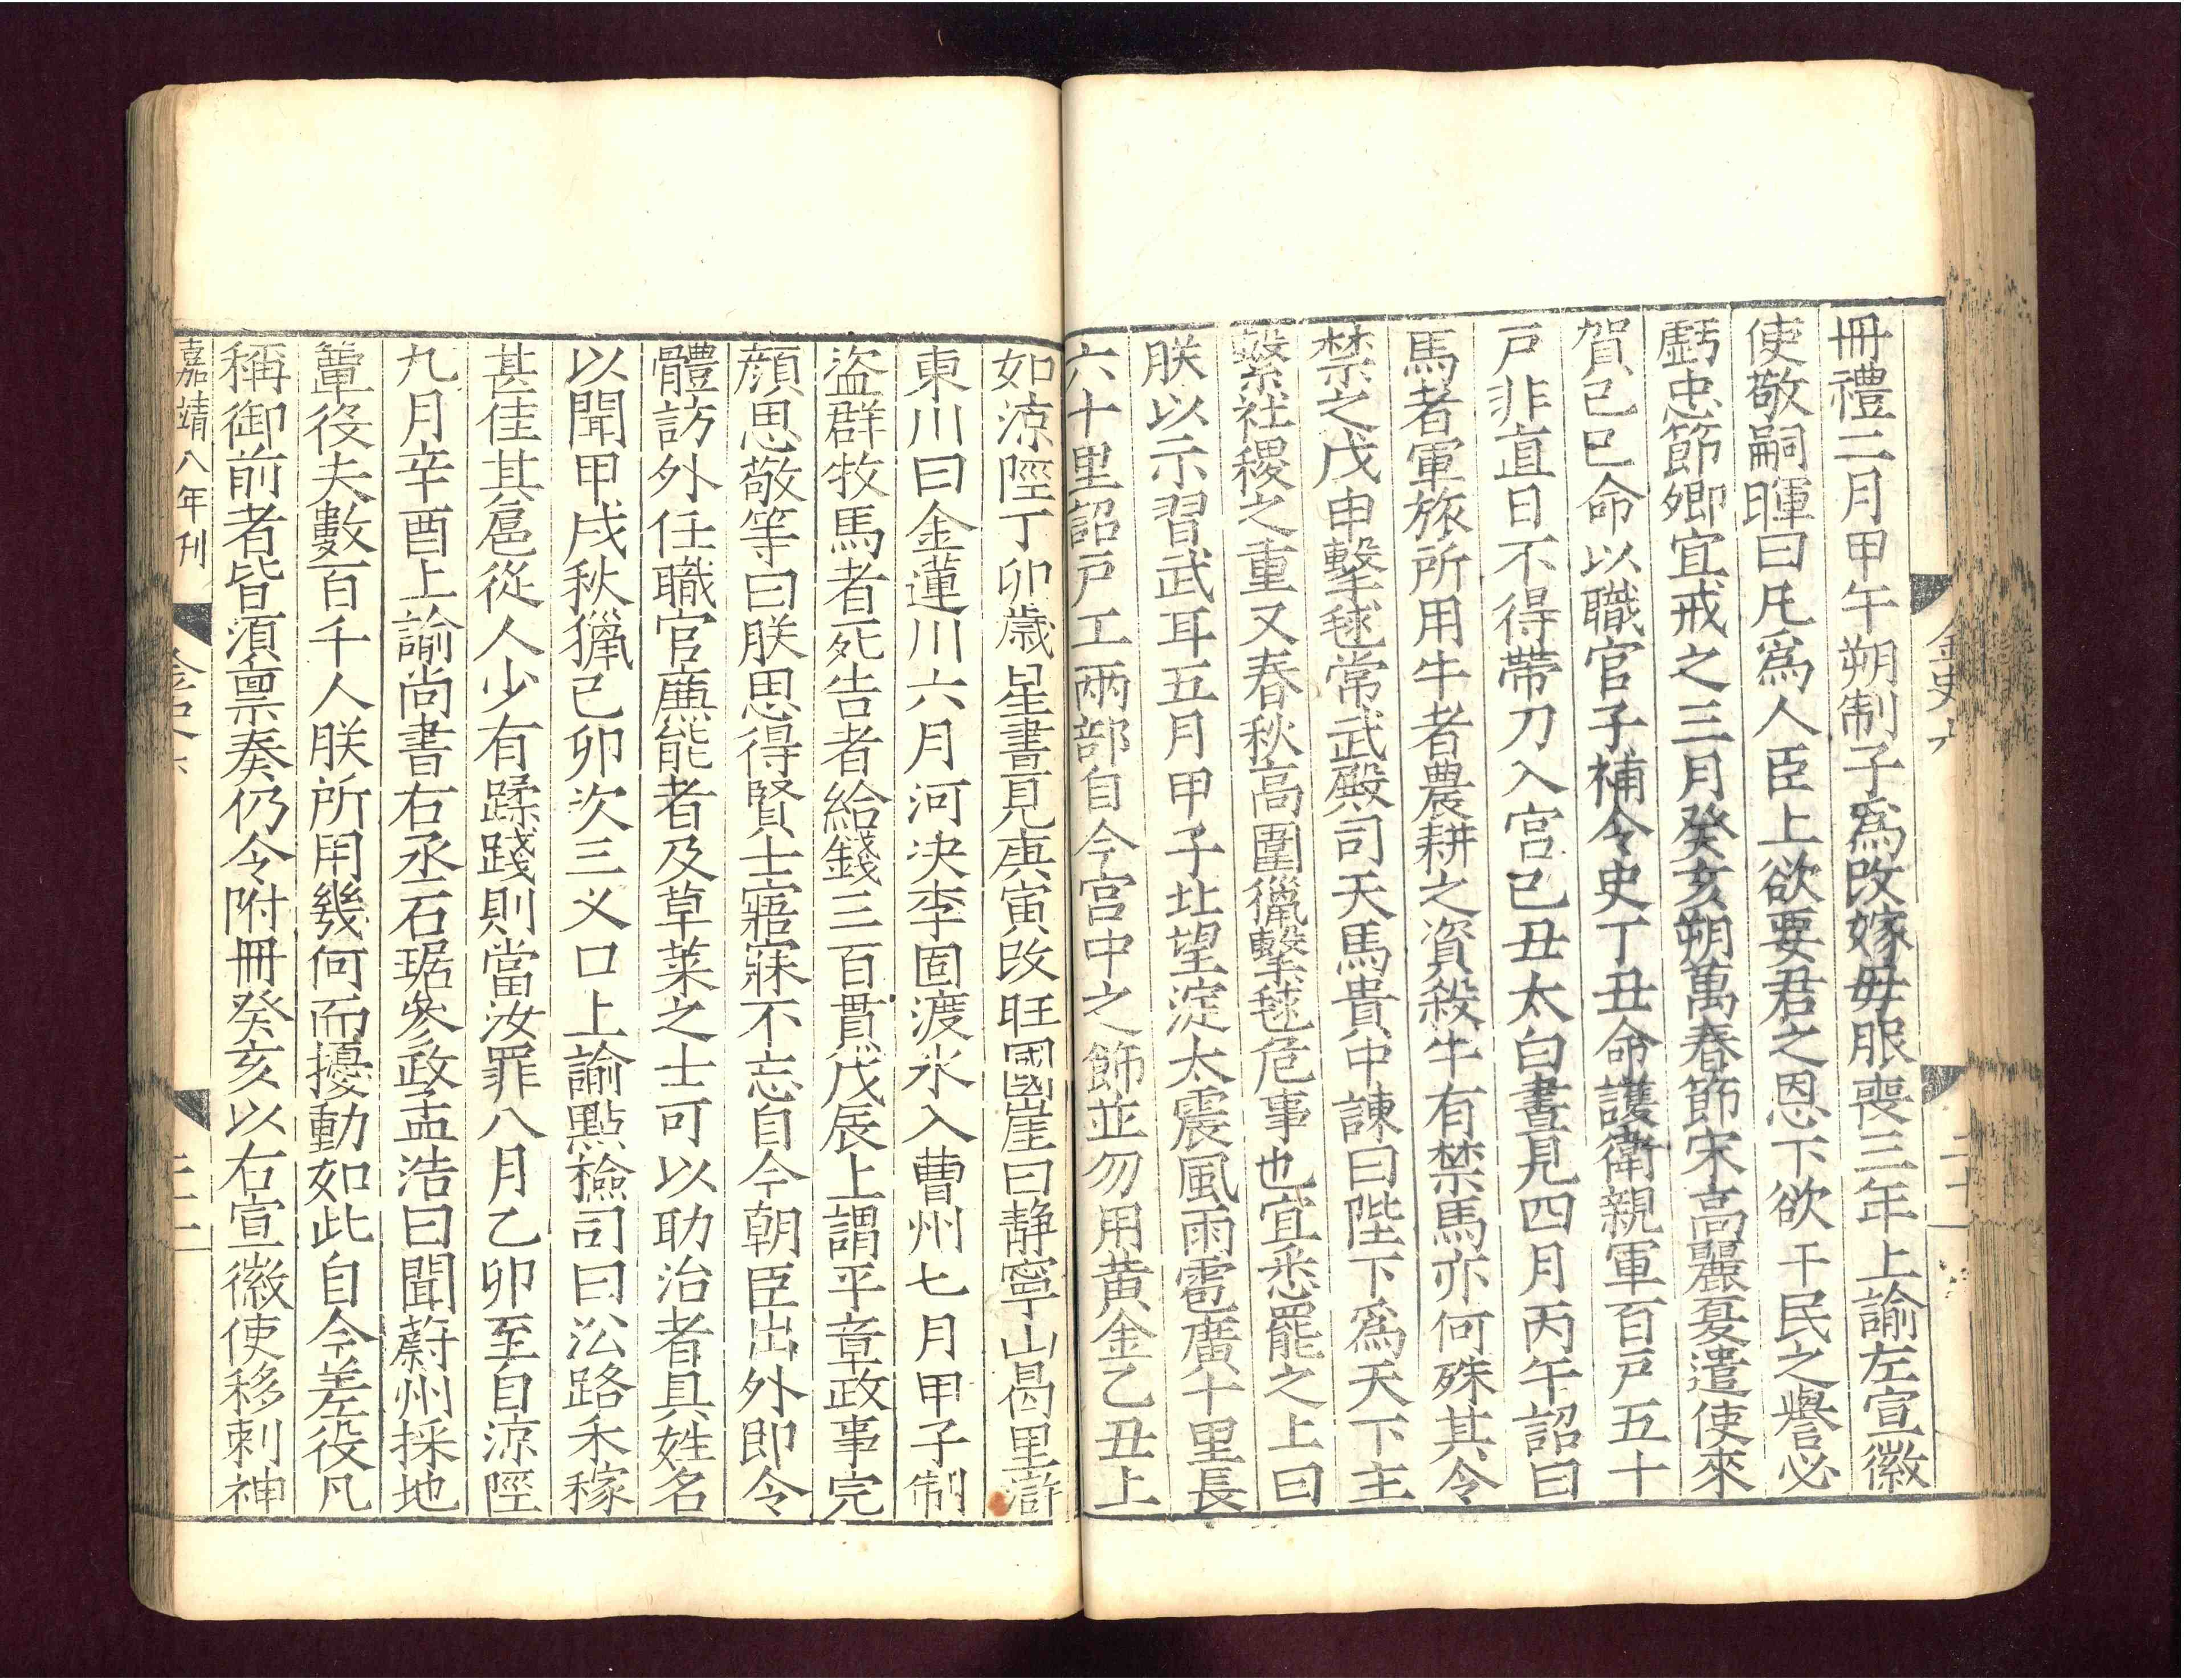 冊禮二月甲午朔制子爲改嫁毋服喪三年上諭左宣徽
使敬嗣暉曰凡爲人臣上欲要君之恩下欲干民之譽必
虧忠節卿宜戒之三月癸亥朔萬春節宋高麗夏遣使來
賀己巳命以職官子補令史丁丑命護衛親軍百戸五十
戸非直日不得帶刀入宫己丑太白晝見四月丙午詔曰
馬者軍旅所用牛者農耕之資殺牛有禁馬亦何殊其令
禁之戊申擊毬常武殿司天馬貴中諫曰陛下爲天下主
繫社稷之重又春秋高圍獵擊毬危事也宜悉罷之上曰
朕以示習武耳五月甲子北望淀太震風雨雹廣十里長
六十里詔戸工兩部自今宫中之飾並勿用黄金乙丑上
金史六
二十一
如涼陘丁卯歲星晝見庚寅改旺國崖曰靜寧山曷里滸
東川曰金蓮川六月河決李固渡水入曹州七月甲子制
盜群牧馬者死告者給錢三百貫戊辰上謂平章政事完
顔思敬等曰朕思得賢士寤寐不忘自今朝臣出外即令
體訪外任職官廉能者及草萊之士可以助治者具姓名
以聞甲戌秋獵己卯次三义口上諭點檢司曰沿路禾稼
甚佳其扈從人少有蹂踐則當汝罪八月乙卯至自涼陘
九月辛酉上諭尚書右丞石琚參政孟浩曰聞蔚州採地
蕈役夫數百千人朕所用幾何而擾動如此自今差役凡
稱御前者皆須稟奏仍令附冊癸亥以右宣徽使移剌神
嘉靖八年刊